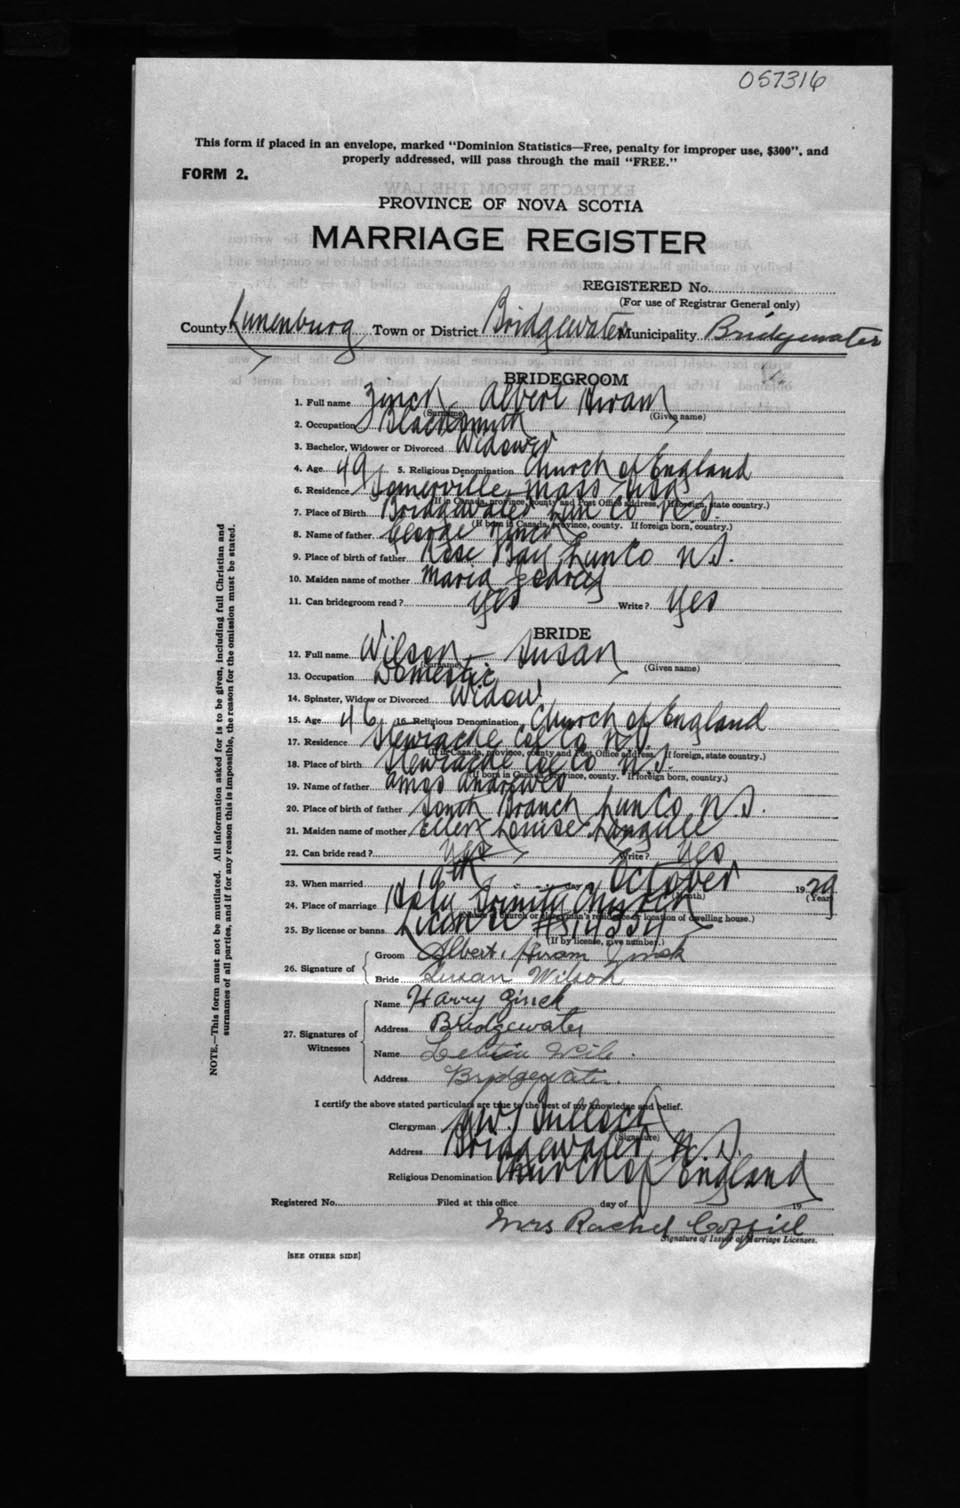 057316
This form if placed in an envelope, marked "Dominion Statistics—Free, penalty for improper use, $300", and
properly addressed, will pass through the mail "FREE."
FORM 2.
PROVINCE OF NOVA SCOTIA
MARRIAGE REGISTER
REGISTERED No.
(For use of Registrar General only)
County Lunenburg Town or District Bridgewater Municipality Bridgewater
BRIDEGROOM
1. Full name Zinck Albert Hiram
(Surname) (Given name)
2. Occupation Blacksmith
3. Bachelor, Widower or Divorced Widower
4. Age 49 5. Religious Denomination Church of England
6. Residence Somerville Mass USA
(If in Canada, province, county and Post Office address. If foreign, state country.)
7. Place of Birth Bridgewater Lun Co N.S.
(If born in Canada, province, county. If foreign born, country.)
8. Name of father George Zinck
9. Place of birth of father Rose Bay Lun Co N S.
10. Maiden name of mother Maria
11. Can bridegroom read? Yes Write? Yes
BRIDE
12. Full name Wilson Susan
(Surname) (Given name)
13. Occupation Domestic
14. Spinster, Widow or Divorced Widow
15. Age 46 16. Religious Denomination Church of England
17. Residence Co N.S.
(If in Canada, province, county and Post Office address. If foreign, state country.)
18. Place of birth Co N.S.
(If born in Canada, province, county. If foreign born, country.)
19. Name of father Amos Andrews
20. Place of birth of father Branch Lun Co N S.
21. Maiden name of mother Ellen Louise Langille
22. Can bride read? Yes Write? Yes
23. When married 19th day October 1929
(Month) (Year)
24. Place of marriage Holy Trinity Church
(State church or clergyman's residence or location of dwelling house.)
25. By license or banns License
(If by license, give number.)
26. Signature of Groom Albert Hiram Zinck
Bride Susan Wilson
27. Signatures of Witnesses Name Harry Zinck
Address Bridgewater
Name Wile
Address Bridgewater.
I certify the above stated particulars are true to the best of my knowledge and belief.
Clergyman
(Signature)
Address Bridgewater N.S.
Religious Denomination Church of England
Registered No. Filed at this office day of 19
Mrs Rachel
Signature of Issuer of Marriage Licenses.
[SEE OTHER SIDE]
NOTE.—This form must not be mutilated. All information asked for is to be given, including full Christian and
surnames of all parties, and if for any reason this is impossible, the reason for the omission must be stated.